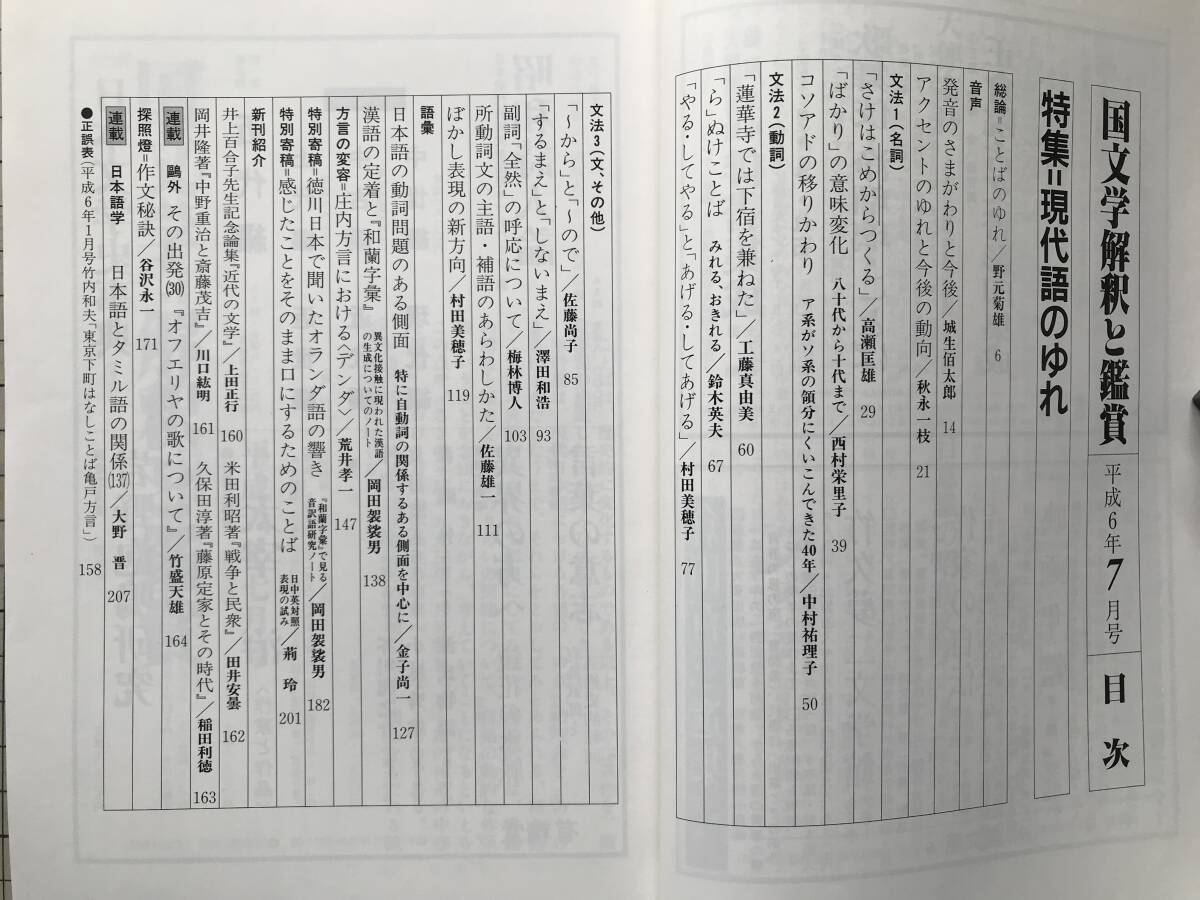 国文学解釈と鑑賞 平成6年7月号 目次
特集=現代語のゆれ
総論=ことばのゆれ/野元菊雄 6
音声
発音のさまがわりと今後/城生佰太郎 14
アクセントのゆれと今後の動向/秋永一枝 21
文法1(名詞)
「さけはこめからつくる」/高瀬匡雄 29
「ばかり」の意味変化 八十代から十代まで/西村栄里子 39
コソアドの移りかわり ア系がソ系の領分にくいこんできた40年/中村祐理子 50
文法2(動詞)
「蓮華寺では下宿を兼ねた」/工藤真由美 60
「ら」ぬけことば みれる、おきれる/鈴木英夫 67
「やる・してやる」と「あげる・してあげる」/村田美穂子 77
文法3(文、その他)
「〜から」と「〜ので」/佐藤尚子 85
「するまえ」と「しないまえ」/澤田和浩 93
副詞「全然」の呼応について/梅林博人 103
所動詞文の主語・補語のあらわしかた/佐藤雄一 111
ぼかし表現の新方向/村田美穂子 119
語彙
日本語の動詞問題のある側面 特に自動詞の関係するある側面を中心に/金子尚一 127
漢語の定着と『和蘭字彙』 異文化接触に現われた漢語の生成についてのノート/岡田袈裟男 138
方言の変容=庄内方言における〈デンダ〉/荒井孝一 147
特別寄稿=徳川日本で聞いたオランダ語の響き 『和蘭字彙』で見る音訳語研究ノート/岡田袈裟男 182
特別寄稿=感じたことをそのまま口にするためのことば 日中英対照表現の試み/荊玲 201
新刊紹介
井上百合子先生記念論集『近代の文学』/上田正行 160 米田利昭著『戦争と民衆』/田井安曇 162
岡井隆著『中野重治と斎藤茂吉』/川口紘明 161 久保田淳著『藤原定家とその時代』/稲田利徳 163
連載 鷗外 その出発(30)『オフェリヤの歌について』/竹盛天雄 164
探照燈=作文秘訣/谷沢永一 171
連載 日本語学 日本語とタミル語の関係(137)/大野晋 207
●正誤表(平成6年1月号竹内和夫「東京下町はなしことば亀戸方言」) 158